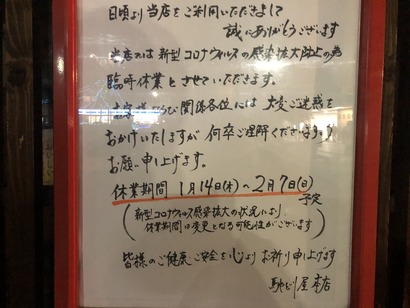 日頃より当店をご利用いただきまして
誠にありがとうございます
当店では新型コロナウィルスの感染拡大防止の為
臨時休業とさせていただきます。
お客様ならび関係各位には大変ご迷惑を
おかけいたしますが何卒ご理解くださいますよう
お願い申し上げます。
休業期間 1月14日(木)〜2月7日(日)
予定
(新型コロナウィルス感染拡大の状況により
休業期間は変更となる可能性がございます)
皆様のご健康、ご安全を心よりお祈り申し上げます
屋本店